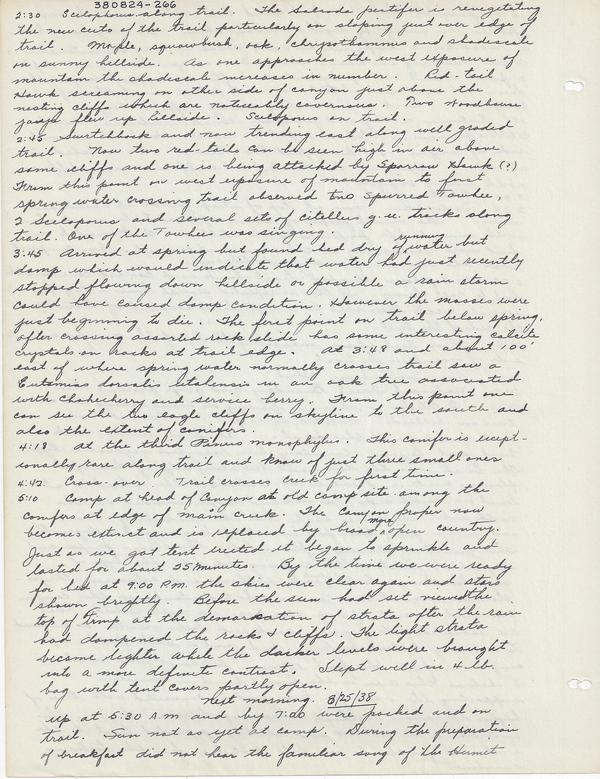 380824-266
2:30 Sceloporus along trail. The Salsola pestifer is revegetating
the new cuts of the trail particularly on sloping just over edge of
trail. Maple, squawbush, oak, Chrysothamnus and shadescale
on sunny hillside. As one approaches the west exposure of
mountain the shadescale increases in number. Red-tail
Hawk screaming on other side of canyon just above the
nesting cliffs which are noticeably cavernous. Two Woodhouse
jays flew up hillside. Sceloporus on trail.
2:45 Switchback and now trending east along well graded
trail. Now two red-tails can be seen high in air above
some cliffs and one is being attacked by Sparrow Hawk (?)
From this point on west exposure of mountain to first
spring water crossing trail observed two Spurred Towhee,
2 Sceloporus and several sets of citellus g. u. tracks along
trail. One of the Towhees was singing.
3:45 Arrived at spring but found bed dry of running water but
damp which would indicate that water had just recently
stopped flowing down hillside or possible a rain storm
could have caused damp condition. However the mosses were
just beginning to die. The first point on trail below spring,
after crossing assorted rock slide has some interesting calcite
crystals on rocks at trail edge. At 3:48 and about 100'
east of where spring water normally crosses trail saw a
Eutamias dorsalis utahensis in an oak tree associated
with chokecherry and service berry. From this point one
can see the two eagle cliffs on skyline to the south and
also the extent of conifers.
4:18 At the third Pinus monophylla. This conifer is except-
ionally rare along trail and know of just three small ones
4:42 Cross-over. Trail crosses creek for first time.
5:10 Camp at head of Canyon at old camp site among the
conifers at edge of main creek. The Canyon proper now
becomes extinct and is replaced by broad, more open country.
Just as we got tent erected it began to sprinkle and
lasted for about 25 minutes. By the time we were ready
for bed at 9:00 P.M. the skies were clear again and stars
shown brightly. Before the sun had set viewed the
top of Timp at the demarkation of strata after the rain
had dampened the rocks & cliffs. The light strata
became lighter while the darker levels were brought
into a more definite contrast. Slept well in 4 lb.
bag with tent covers partly open.
Next morning. 8/25/38
up at 5:30 A.M and by 7:00 were packed and on
trail. Sun not as yet at camp. During the preparation
of breakfast did not hear the familiar song of the Hermit